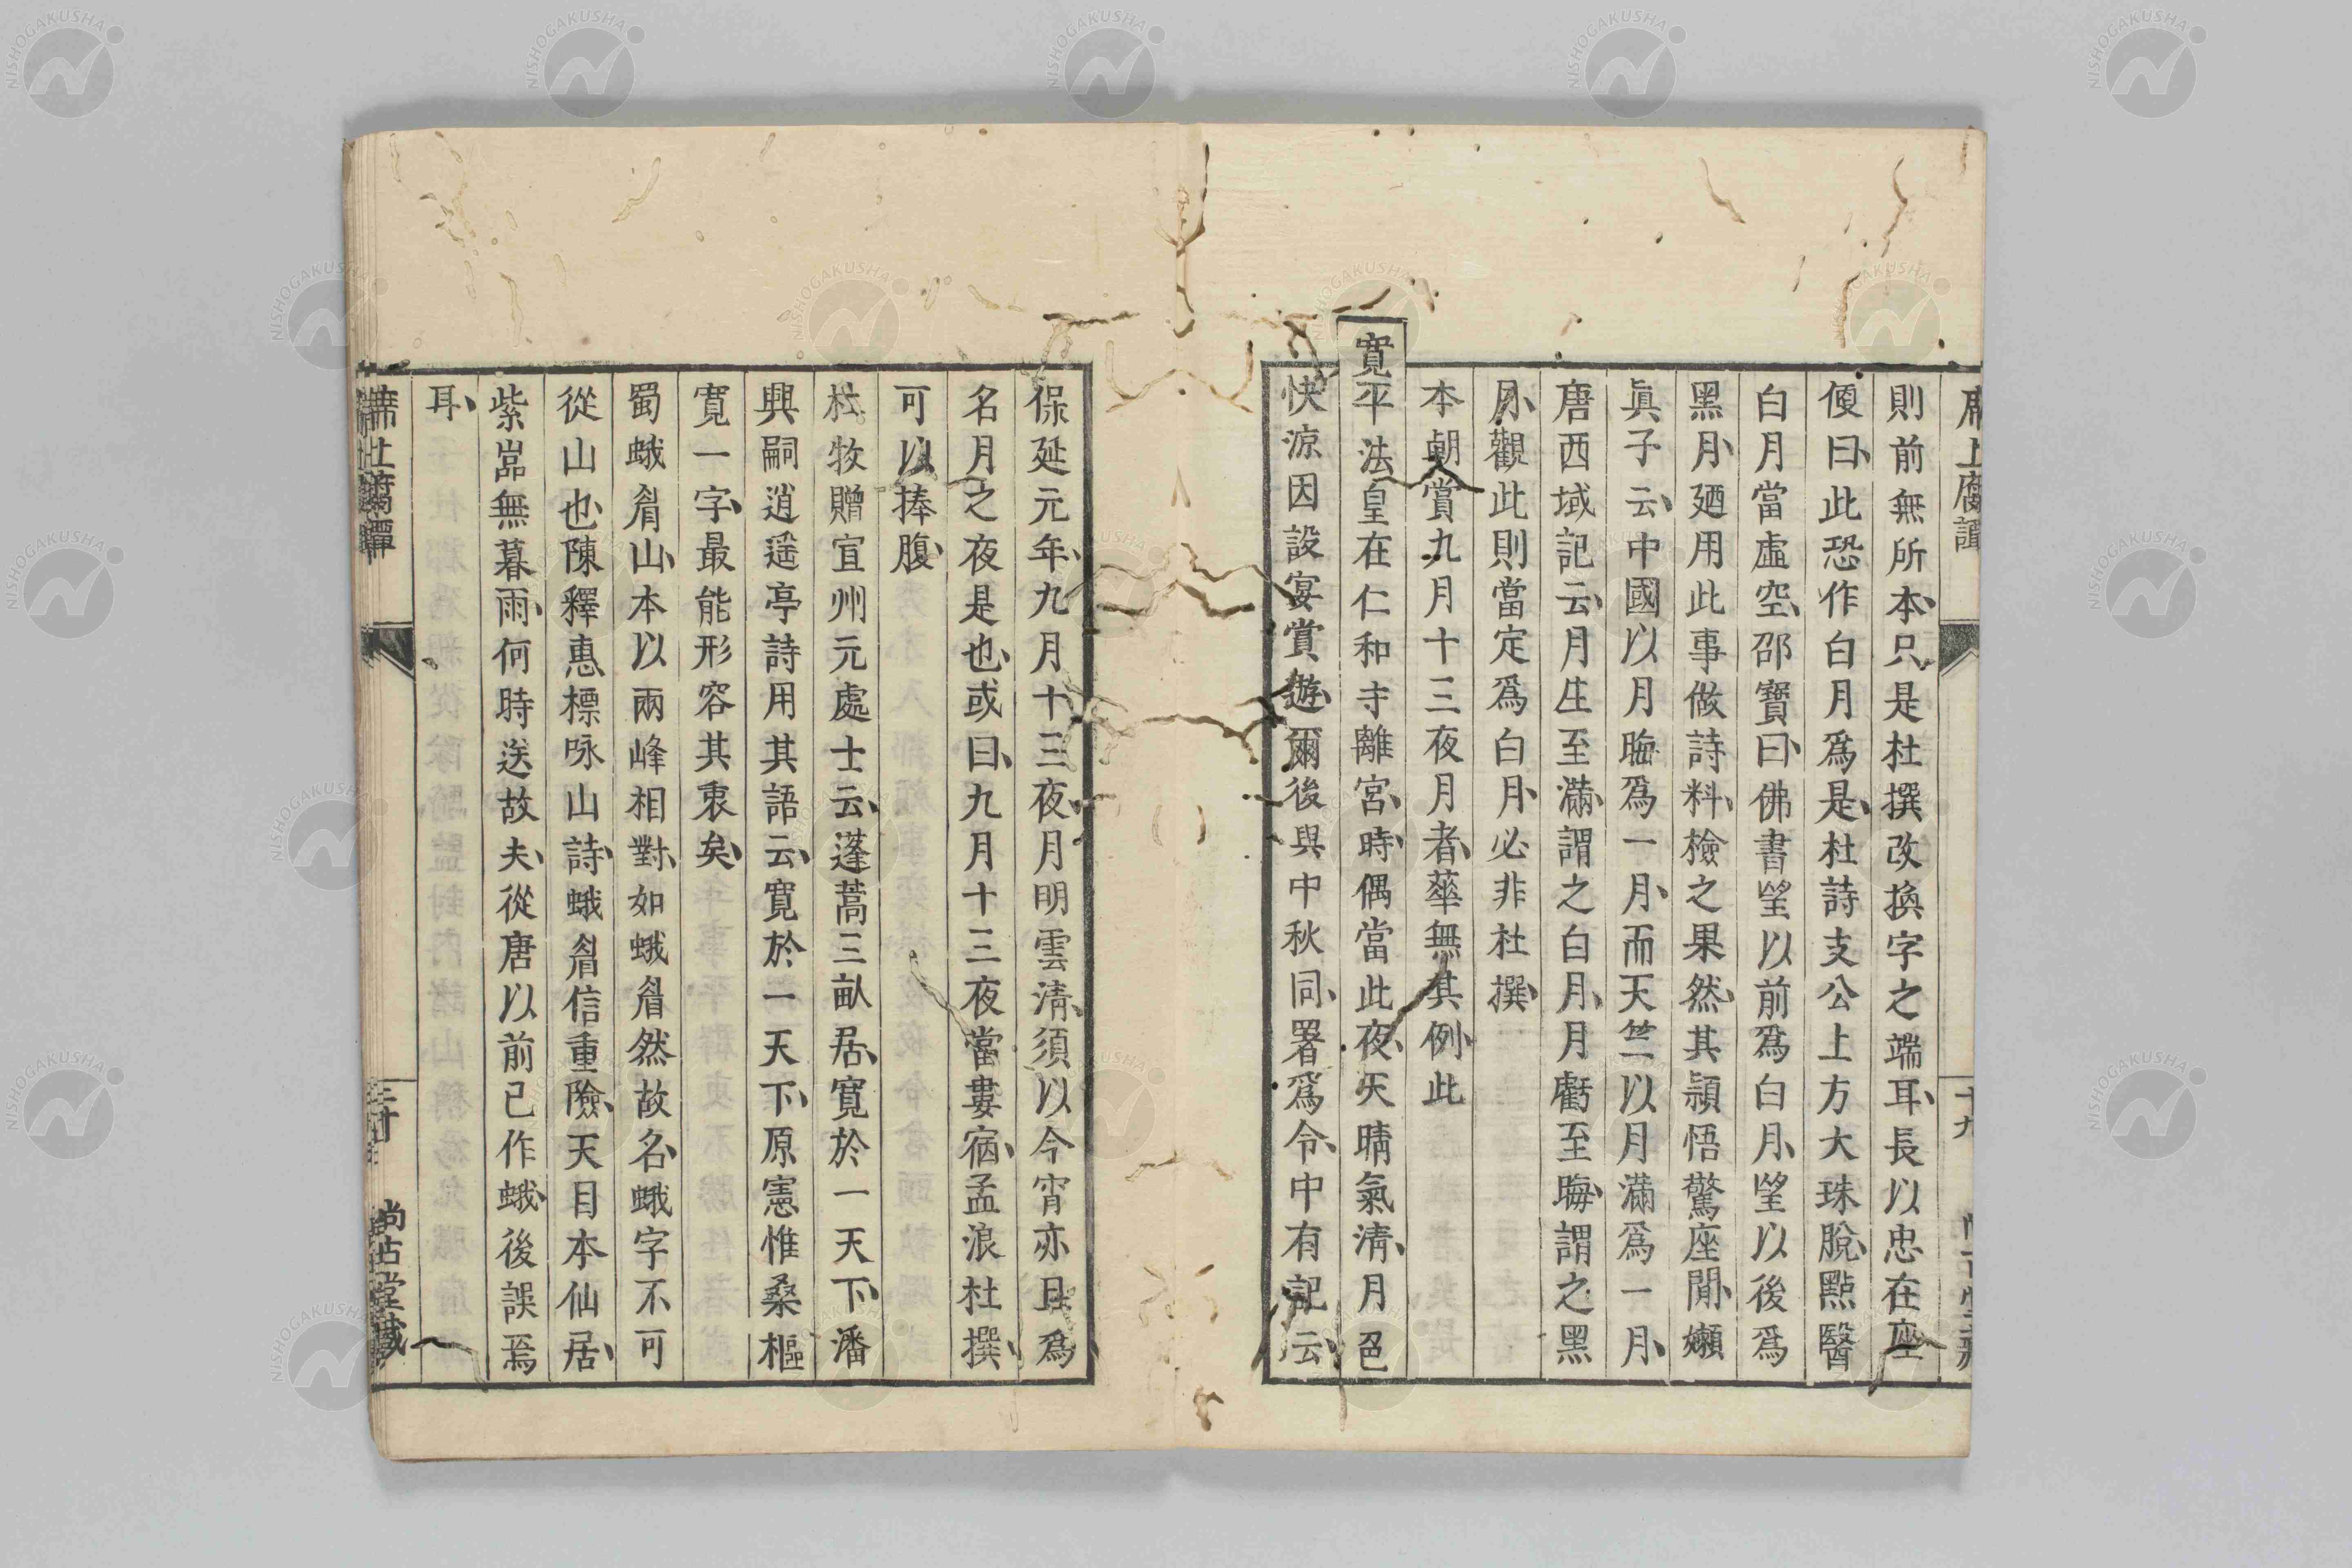 席上腐譚
十九
則前無所本、只是杜撰改換字之端耳、長以忠在座
傻曰、此恐作白月爲是、杜詩支公上方大珠脫、點醫
白月當虛空、邵寶曰、佛書望以前爲白月、望以後爲
黑月、廼用此事做詩料、檢之果然、其頴悟驚座聞、嬾
眞子云、中國以月晦爲一月、而天竺以月滿爲一月、
唐西域記云、月生至滿、謂之白月、月虧至晦、謂之黑
月、觀此則當定爲白月、必非杜撰、
本朝賞九月十三夜月者、華無其例、此
寬平法皇在仁和寺離宮、時偶當此夜、天晴氣清、月色
快涼因設宴賞遊、爾後與中秋同、署爲令、中有記云、
保延元年、九月十三夜、月明雲清、須以今宵亦且爲
名月之夜是也、或曰、九月十三夜當婁宿、孟浪杜撰、
可以捧腹、
杜牧贈宜州元處士云、蓬蒿三畝居、寬於一天下、潘
興嗣逍遥亭詩用其語云、寬於一天下、原憲惟桑樞
寬一字、最能形容其衷矣、
蜀蛾眉山、本以兩峰相對、如蛾眉然故名、蛾字不可
從山也、陳釋惠標咏山詩、蛾眉信重險、天目本仙居、
紫嵓無暮雨、何時送故夫、從唐以前已作蛾、後誤焉
耳、
尚古堂藏
NISHOGAKUSHA